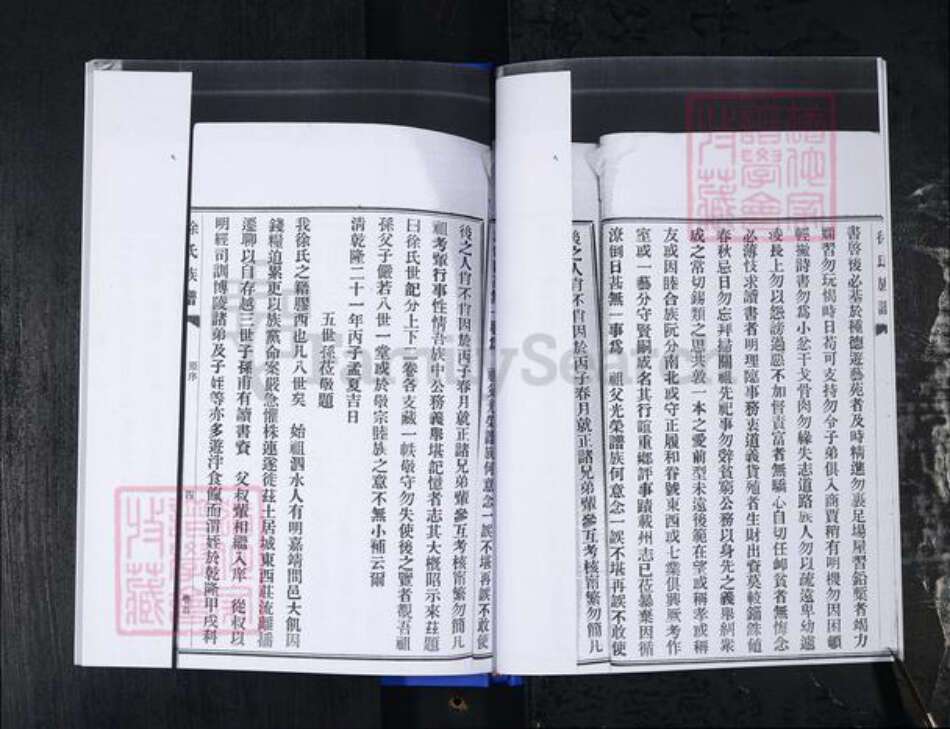 書啓後必基於種德遊藝苑者及時精進勿裹足場屋習鉛槧者竭力
嫺習勿玩愒時日苟可支持勿令子弟俱入商賈稍有明機勿因困頓
輕撇詩書勿爲小忿干戈骨肉勿緣失志道路族人勿以疏遠卑幼遽
凌長上勿以怨謗過惡不加督責富者無驕心自切任岬貧者無慚念
必薄忮求讀書者明理臨事務衷道義貨殖者生財出資莫較錙銖值
春秋忌日勿忘拜掃關祖先祀事勿辭貧窮公務以身先之義舉糾衆
成之常切錫類之思共敦一本之愛前型未遠後範在望或稱孝或稱
友或因睦合族阮分南北或守正履和眷號東西或七業俱興或考作
室或一藝分守賢嗣成名其行誼重鄉評事蹟載州志已莅暴棄因循
潦倒日甚無一事爲 祖父光榮譜族何意念一誤不堪再誤不敢使
後之人肖不肖因於丙子春月就正諸兄弟輩參互考核甯繁勿簡凡
後之人肖不肖因於丙子春月就正諸兄弟輩參互考核甯繁勿簡凡
祖考輩行事性情吾族中公務義舉堪記憶者志其大概昭示來茲題
曰徐氏世紀分上下二卷各支藏一帙敬守勿失使後之覽者觀吾祖
孫父子儼若八世一堂或於敬宗睦族之意不無小補云爾
清乾隆二十一年丙子孟夏吉日
五世孫莅敬題
我徐氏之籍膠西也凡八世矣 始祖泗水人有明嘉靖間邑大飢因
錢糧迫累更以族黨命案嚴急懼株連遂徙茲土居城東西莊流離播
遷聊以自存越三世子孫甫有讀書資 父叔輩相繼入庠 從叔以
明經司訓博陵諸弟及子姪等亦多遊泮食餼而渭姪於乾隆甲戌科
徐氏族譜
原序
四
FamilySearch